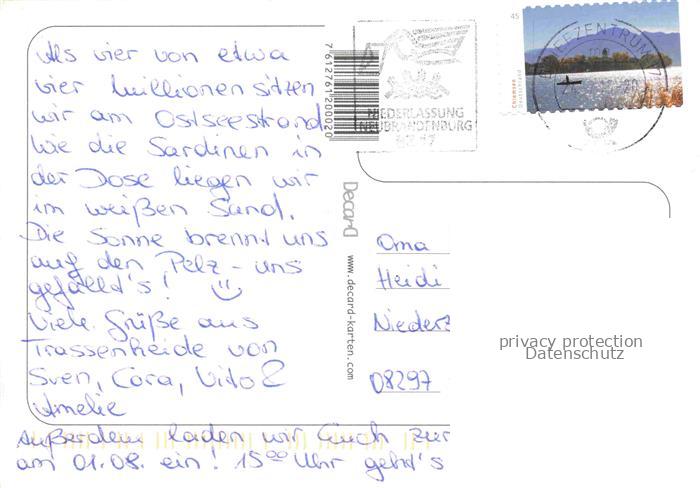 Als vier von etwa
vier Millionen sitzen
wir am Ostseestrand.
Wie die Sardinen in
der Dose liegen wir
im weißen Sand.
Die Sonne brennt uns
auf den Pelz - uns
gefällt's!
Viele Grüße aus
Trassenheide von
Sven, Cora, Vito &
Amelie
Außerdem laden wir Euch zur
am 01.08. ein! 15⁰⁰ Uhr geht's
7612761200020
Decard
www.decard-karten.com
NIEDERLASSUNG
NEUBRANDENBURG
45
Chiemsee
Deutschland
Oma
Heidi
Nieder
08297
privacy protection
Datenschutz